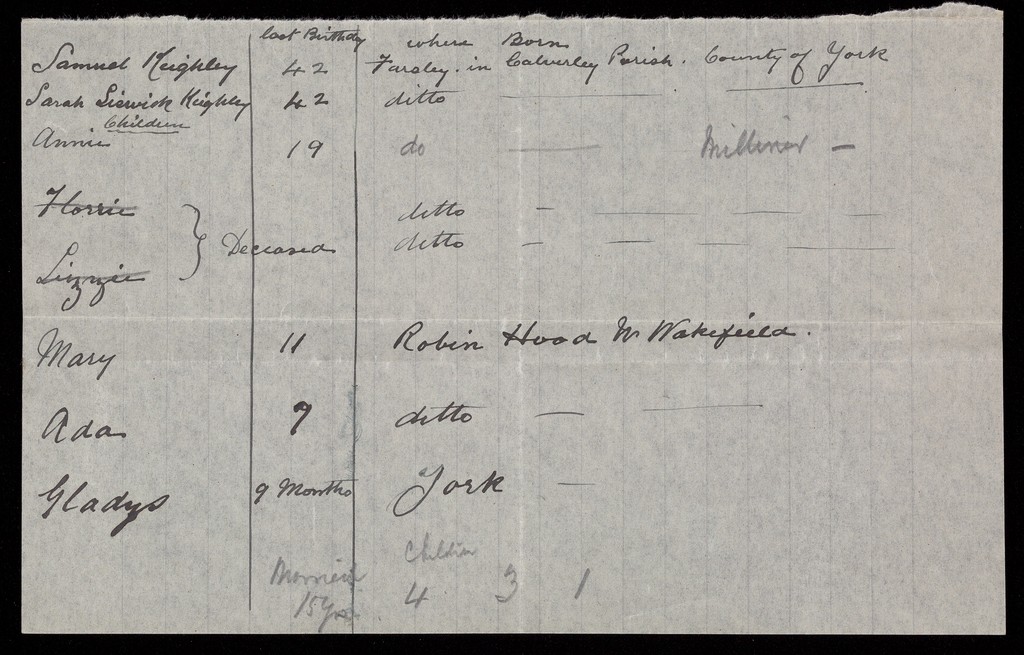 last Birthday where Born
Samuel Keighley 42 Farsley. in Calverley Parish. County of York
Sarah Keighley 42 ditto
Children
Annie 19 do Milliner —
Florrie ditto —
Deceased ditto —
Lizzie
Mary 11 Robin Hood Nr Wakefield.
Ada 9 ditto —
Gladys 9 Months York —
Children
Married 4 3 1
15 Yrs